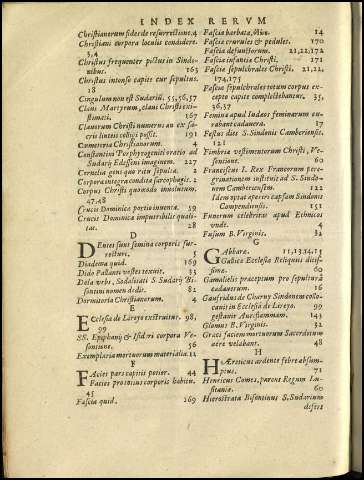 INDEX RERVM
Christianorum fides de resurrectione. 4
Christiani corpora loculis condidere.
3, 4
Christus frequenter pictus in Sindonibus. 165
Christus intonso capite cur sepultus.
18
Cingulum non est Sudariũ. 55, 56, 57
Clani Martyrium, claui Christi existimati. 167
Clauorum Christi numerus an ex sacris linteis colligi possit. 191
Cœmeteria Christianorum. 4
Constantini Porphyrogeniti oratio ad
Sudarij Edesseni imaginem. 227
Cornelia gens quo ritu sepulta. 2
Corpora integra condita sarcophagis. 2
Corpus Christi quomodo inuolutum.
47. 48
Crucis Dominicæ portio inuenta. 59
Crucis Dominicæ impurribilis qualitas. 28
D
DEntes suos semina corporis surrecturi. 5
Diadema quid. 169
Dido Pallanti vestes texuit. 35
Dola vrbs, Sodalitati S. Sudarij Bisontini nomen dedit. 82
Dormitoria Christianorum. 4
E
ECclesia de Lireyo exstruitur. 98,
99
SS. Epiphanij & Isidori corpora Vesontione. 56
Exemplaria mortuorum materialia. 11
F
FAcies pars capitis potior. 44
Facies pro totius corporis habitu.
45
Fascia quid. 169
Fascia barbata, Viuo. 14
Fascia crurules & pedules. 170
Fascia defunctorum. 21, 22, 172
Fascia infantis Christi. 171
Fascia sepulchrales Christi. 21, 22,
174, 175
Fascia sepulchrales totum corpus excepto capite complectebantur. 35,
36, 37
Femina apud Indos feminarum curabant cadauera. 17
Festus dies S. Sindonis Camberiensis.
121
Fimbria vestimentorum Christi, Vesontione. 60
Franciscus I. Rex Francorum peregrinationem instituit ad S. Sindonem Camberiensem. 122
Idem optat aperiri capsam Sindonis
Compendiensis. 151
Funerum celebritas apud Ethnicos
vnde. 4
Fusum B. Virginis. 32
G
GAbbara. 11, 13, 14, 15
Galliæ Ecclesia Reliquiis ditissima. 60
Gamalielis præceptum pro sepultura
cadauerum. 16
Gaufridus de Charny Sindonem collocauit in Ecclesia de Lireyo. 99
gestauit Auriflammam. 143
Glomus B. Virginis. 32
Græci faciem mortuorum Sacerdotum
aere velabant. 48
H
HÆreticus ardente febre absumptus. 71
Henricus Comes, parens Regum Lusitaniæ. 60
Hierostrata Bisontinus S. Sudarium
defert